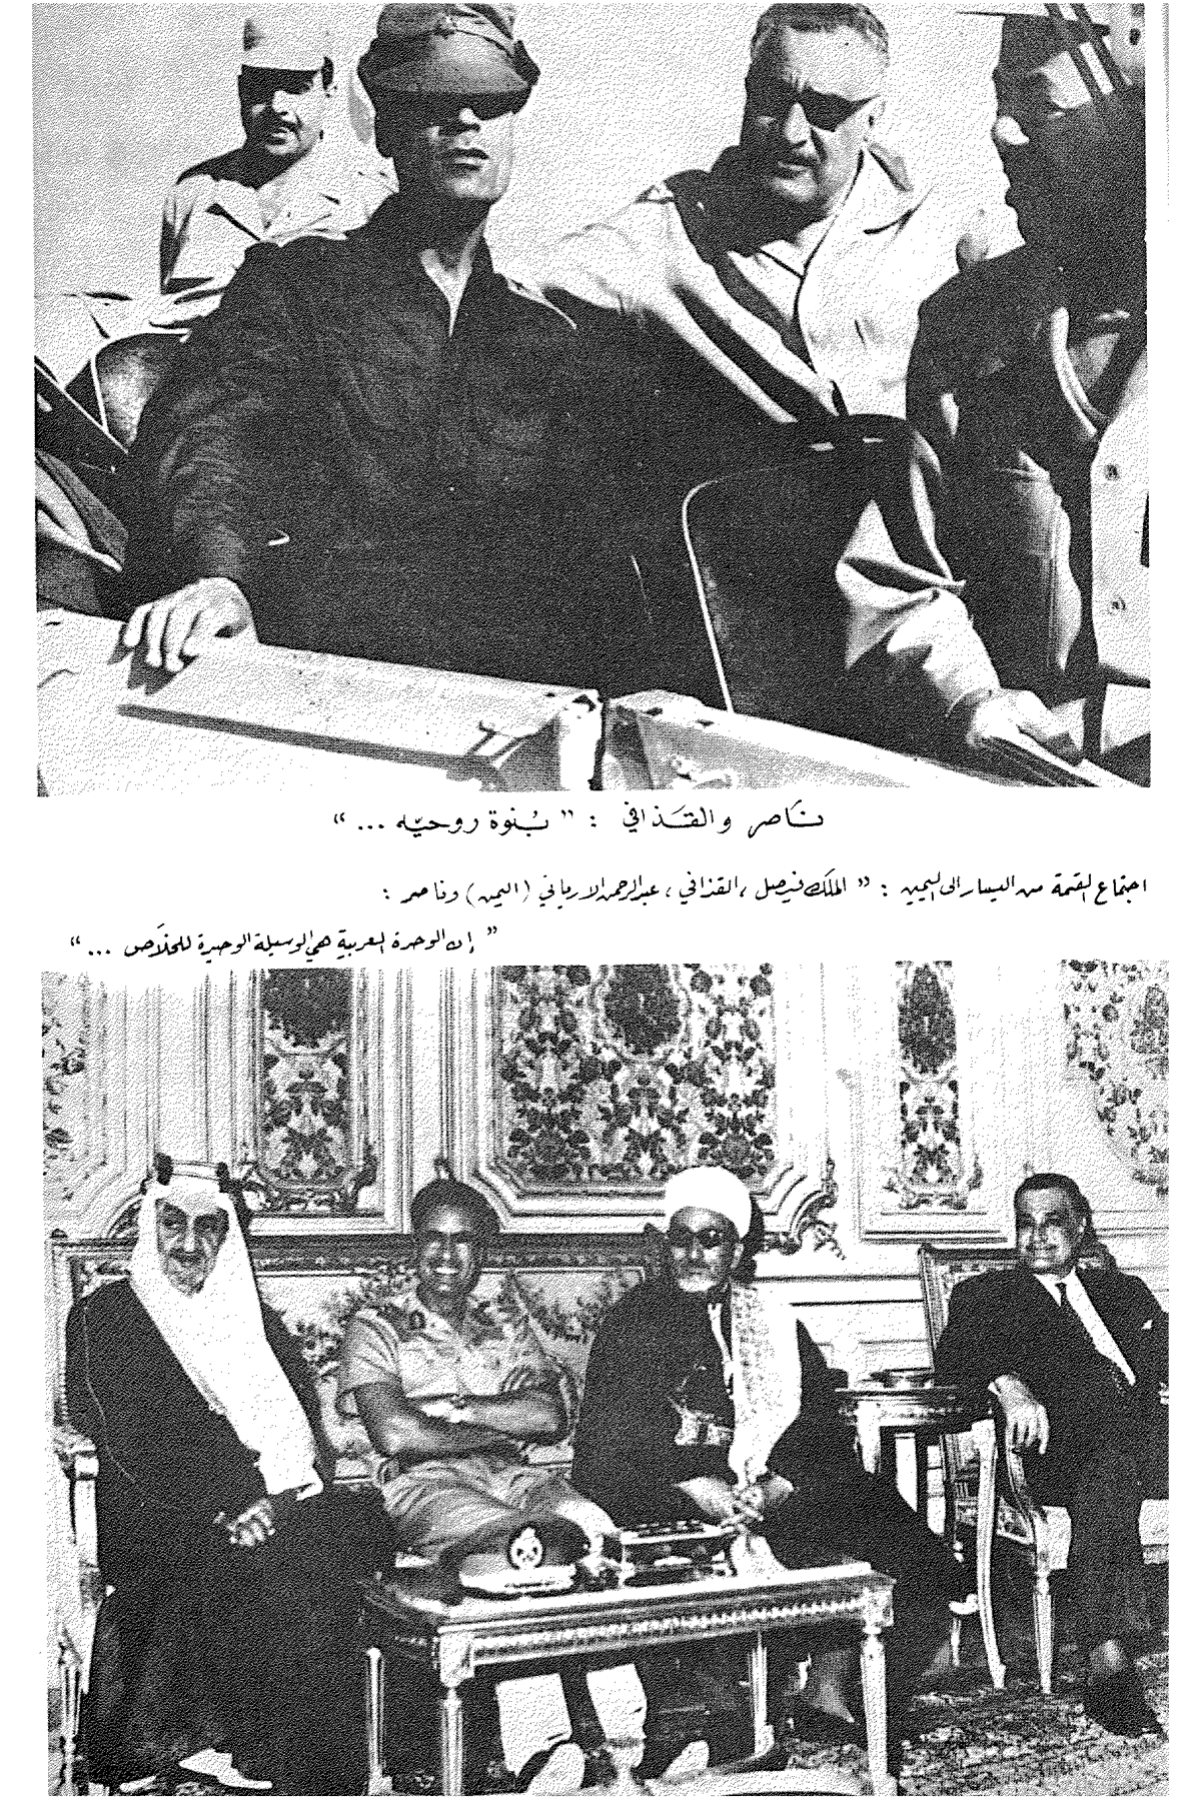 نَاصر والقَذافي : " بُنوة روحيّه ... "
اجتماع القمة من اليسار الى اليمين : " الملك فيصل ، القذافي ، عبدالرحمن الارياني ( اليمن ) وناصر :
" إن الوحدة العربية هي الوسيلة الوحيدة للخلاَص ... "